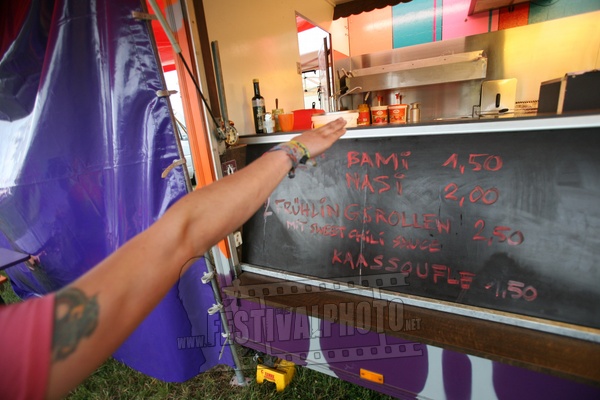 BAMI 1,50
NASI 2,00
FRÜHLINGSROLLEN 2,50
MIT SWEET CHILI SAUCE
KAASSOUFLE 1,50
WWW.FESTIVALPHOTO.NET